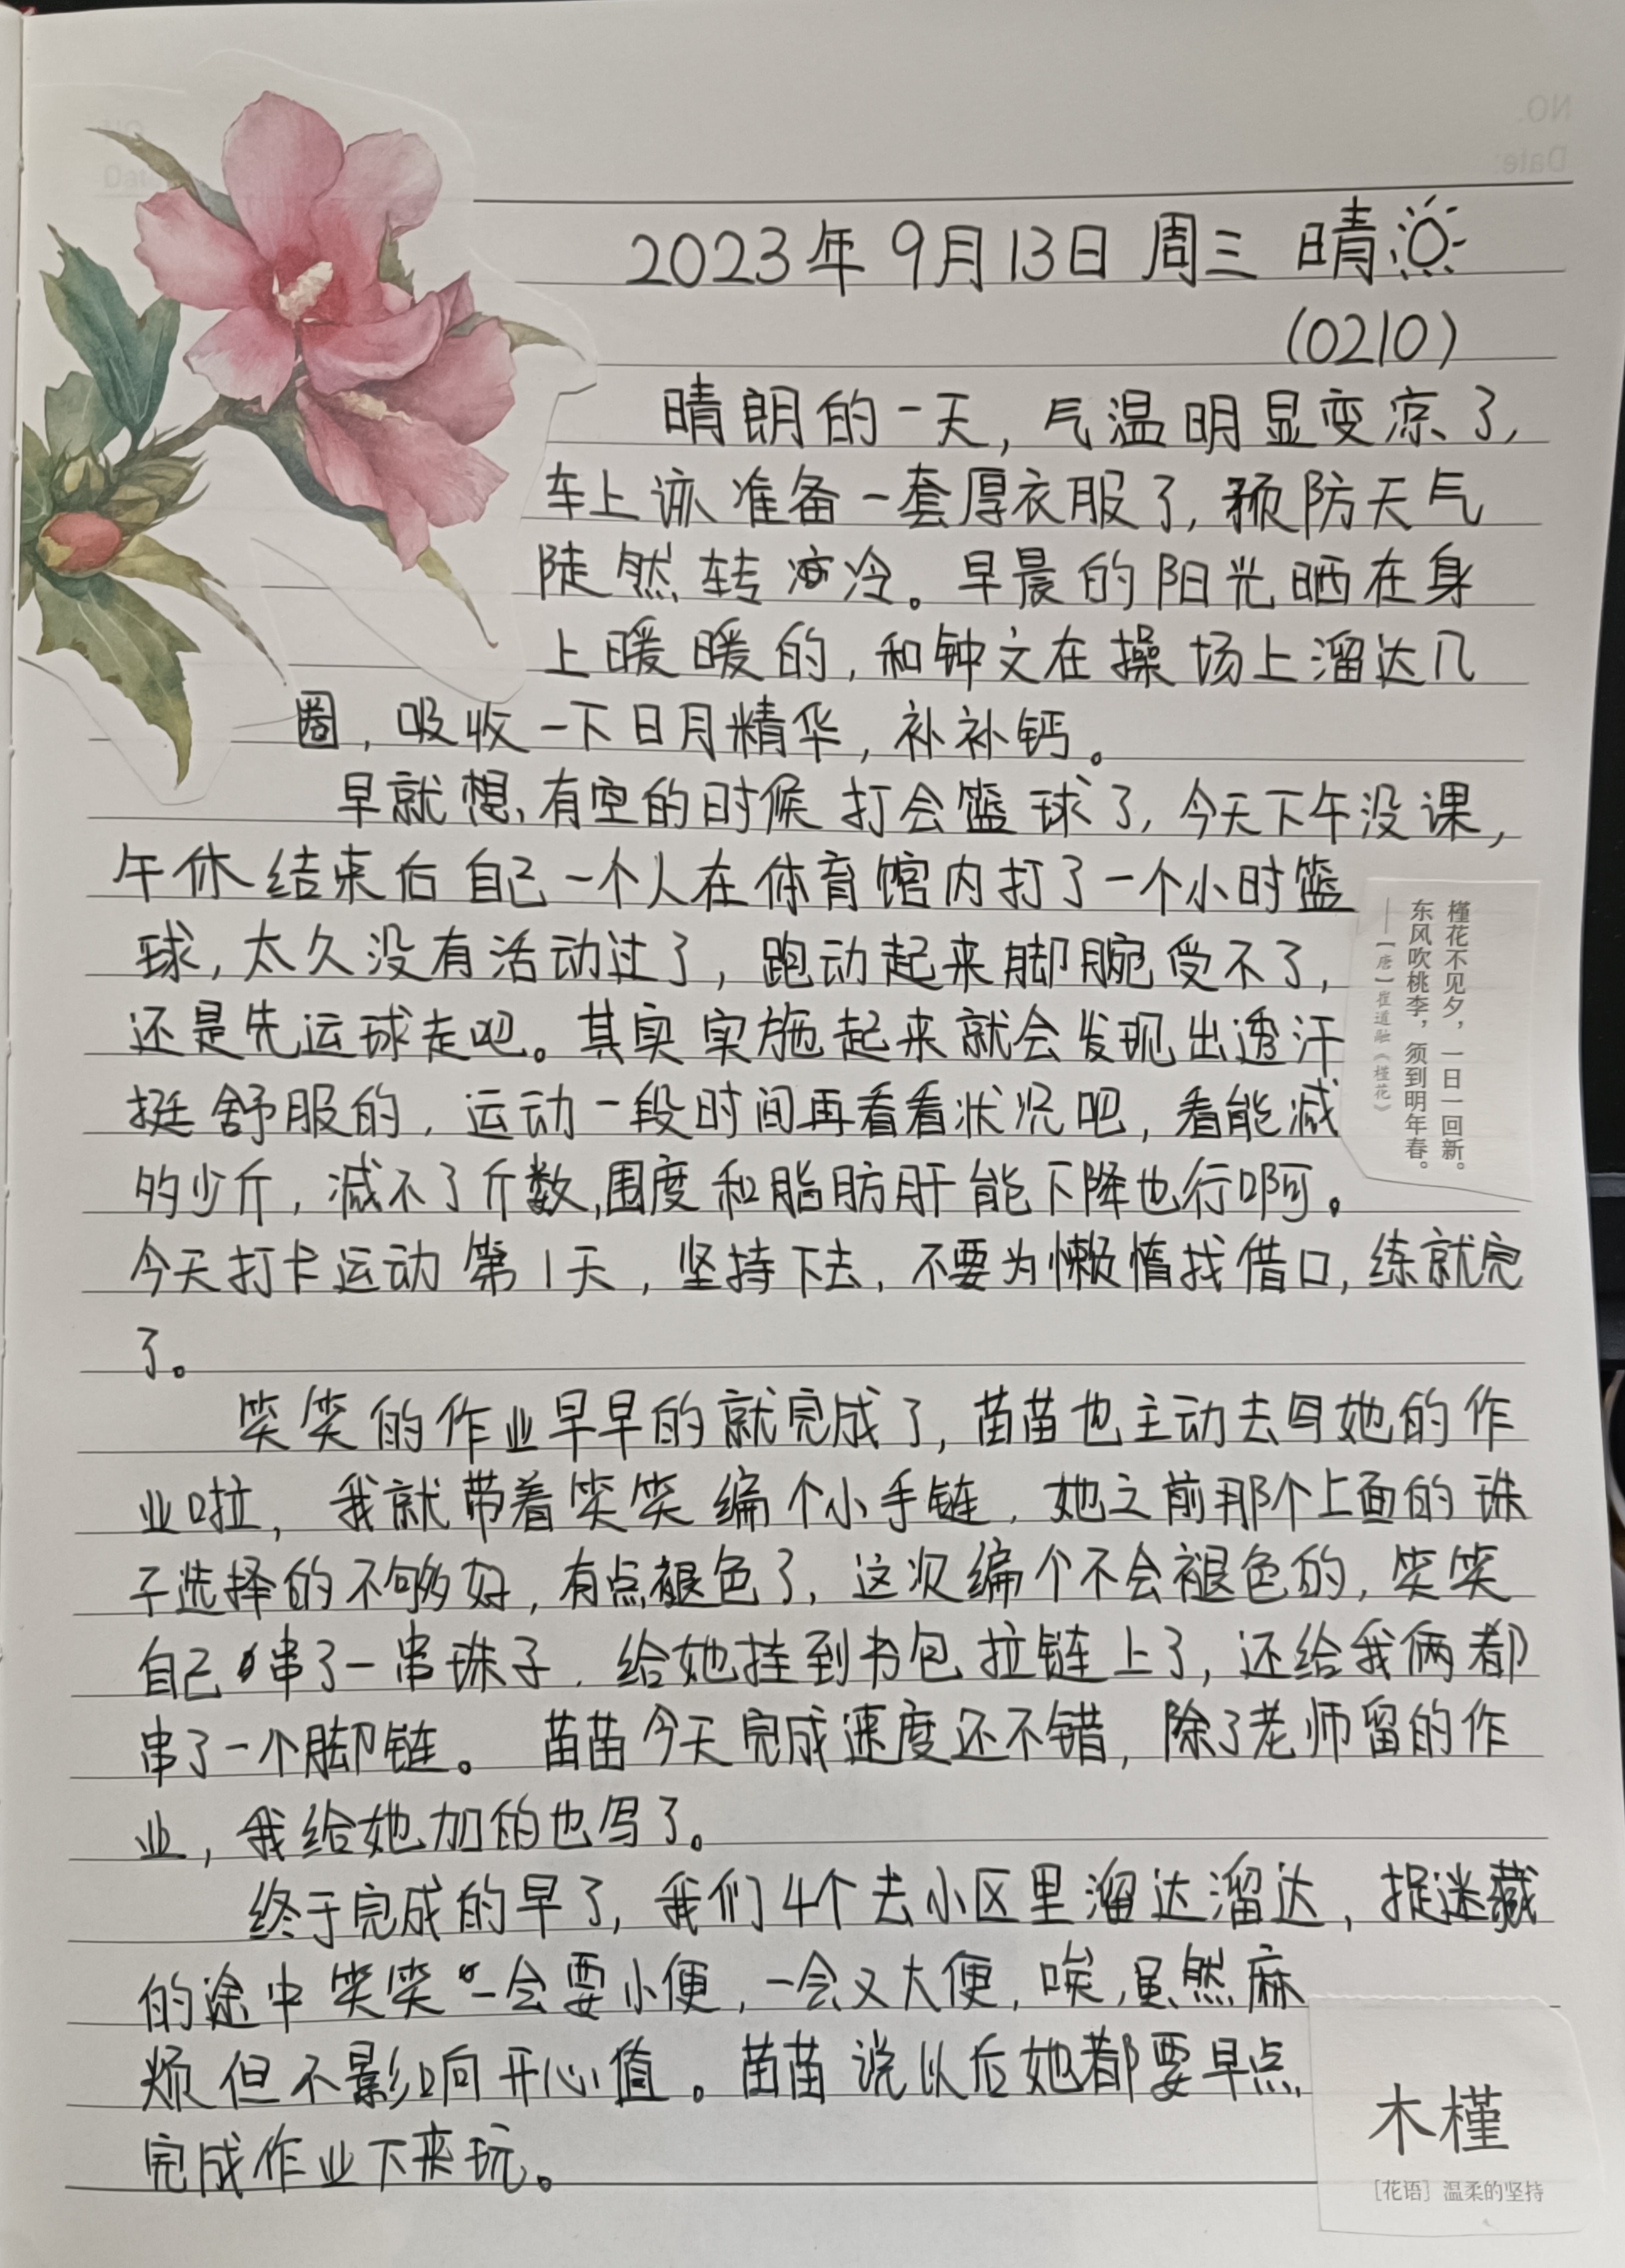 2023年9月13日 周三 晴
(0210)
晴朗的一天,气温明显变凉了,
车上该准备一套厚衣服了,预防天气
陡然转冷。早晨的阳光晒在身
上暖暖的,和钟文在操场上溜达几
圈,吸收一下日月精华,补补钙。
早就想,有空的时候打会篮球了,今天下午没课,
午休结束后自己一个人在体育馆内打了一个小时篮
球,太久没有活动过了,跑动起来脚腕受不了,
还是先运球走吧。其实实施起来就会发现出透汗
挺舒服的,运动一段时间再看看状况吧,看能减
的少斤,减不了斤数,围度和脂肪肝能下降也行啊。
今天打卡运动第1天,坚持下去,不要为懒惰找借口,练就完
了。
笑笑的作业早早的就完成了,苗苗也主动去写她的作
业啦,我就带着笑笑编个小手链,她之前那个上面的珠
子选择的不够好,有点褪色了,这次编个不会褪色的,笑笑
自己串了一串珠子,给她挂到书包拉链上了,还给我俩都
串了一个脚链。苗苗今天完成速度还不错,除了老师留的作
业,我给她加的也写了。
终于完成的早了,我们4个去小区里溜达溜达,捉迷藏
的途中笑笑一会要小便,一会又大便,唉,虽然麻
烦但不影响开心值。苗苗说以后她都要早点
完成作业下来玩。
槿花不见夕,一日一回新。
东风吹桃李,须到明年春。
——[唐]崔道融《槿花》
木槿
[花语] 温柔的坚持
NO.
Date: